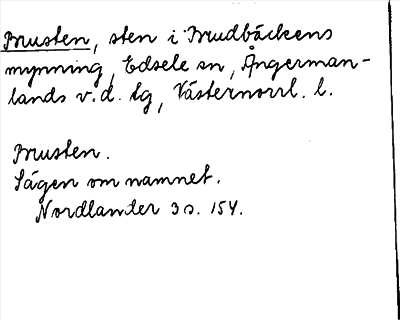 Brusten, sten i Brudbäckens
mynning, Edsele sn, Ångerman-
lands v.d. tg, Västernorrl. l.
Brusten.
Sägen om namnet.
Nordlander 3 s. 154.